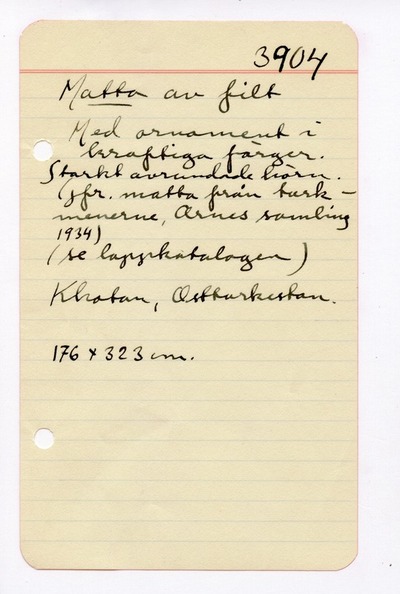 3904
Matta av filt
Med ornament i
kraftiga färger.
Starkt avrundade hörn.
(jfr. matta från turk-
menerne, Arnes samling
1934)
(se lappkatalogen)
Khotan, Ostturkestan.
176 x 323 cm.